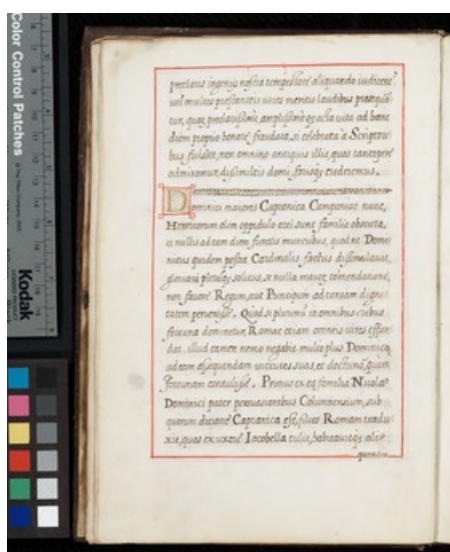 Color Control Patches
Kodak
preclaris ingenijs nostra tempestate aliquando iudicent,
vel multis prestantis uiris meritis laudibus
tur, quae preclarissime, amplissimeq; acta uita ad hanc
diem proprio honore fraudata, si celebrata à Scriptori
bus fuisset, non omnino antiquis illis, quos tantopere
admiramur, dissimiles domi, forisq; crederemus.
Dominici maiores Capranica Campaniae nunc,
Hernicorum olim oppidulo orti sunt familia obscura,
et nullis ad eam diem functis muneribus, quod ne Domi
nicus quidem postea Cardinalis factus dissimulauit,
gloriari plerunq; solitus, se nulla maiorum comendatione,
non fauore Regum, aut Principum ad tantam digni
tatem peruenisse. Quod si plurimum in omnibus rebus
fortuna dominetur, Romae etiam omneis uires effun
dat, illud tamen nemo negabit multo plus Dominico
ad eam assequendam uirtutes suas, et doctrinam, quam
fortunam contulisse. Primus ex ea familia Nicolaus
Dominici pater persuasionibus Columnensium, sub
quorum ditione Capranica est, filios Romam tradu
xit, quos ex uxore Iacobella tulit, habuitq; ali